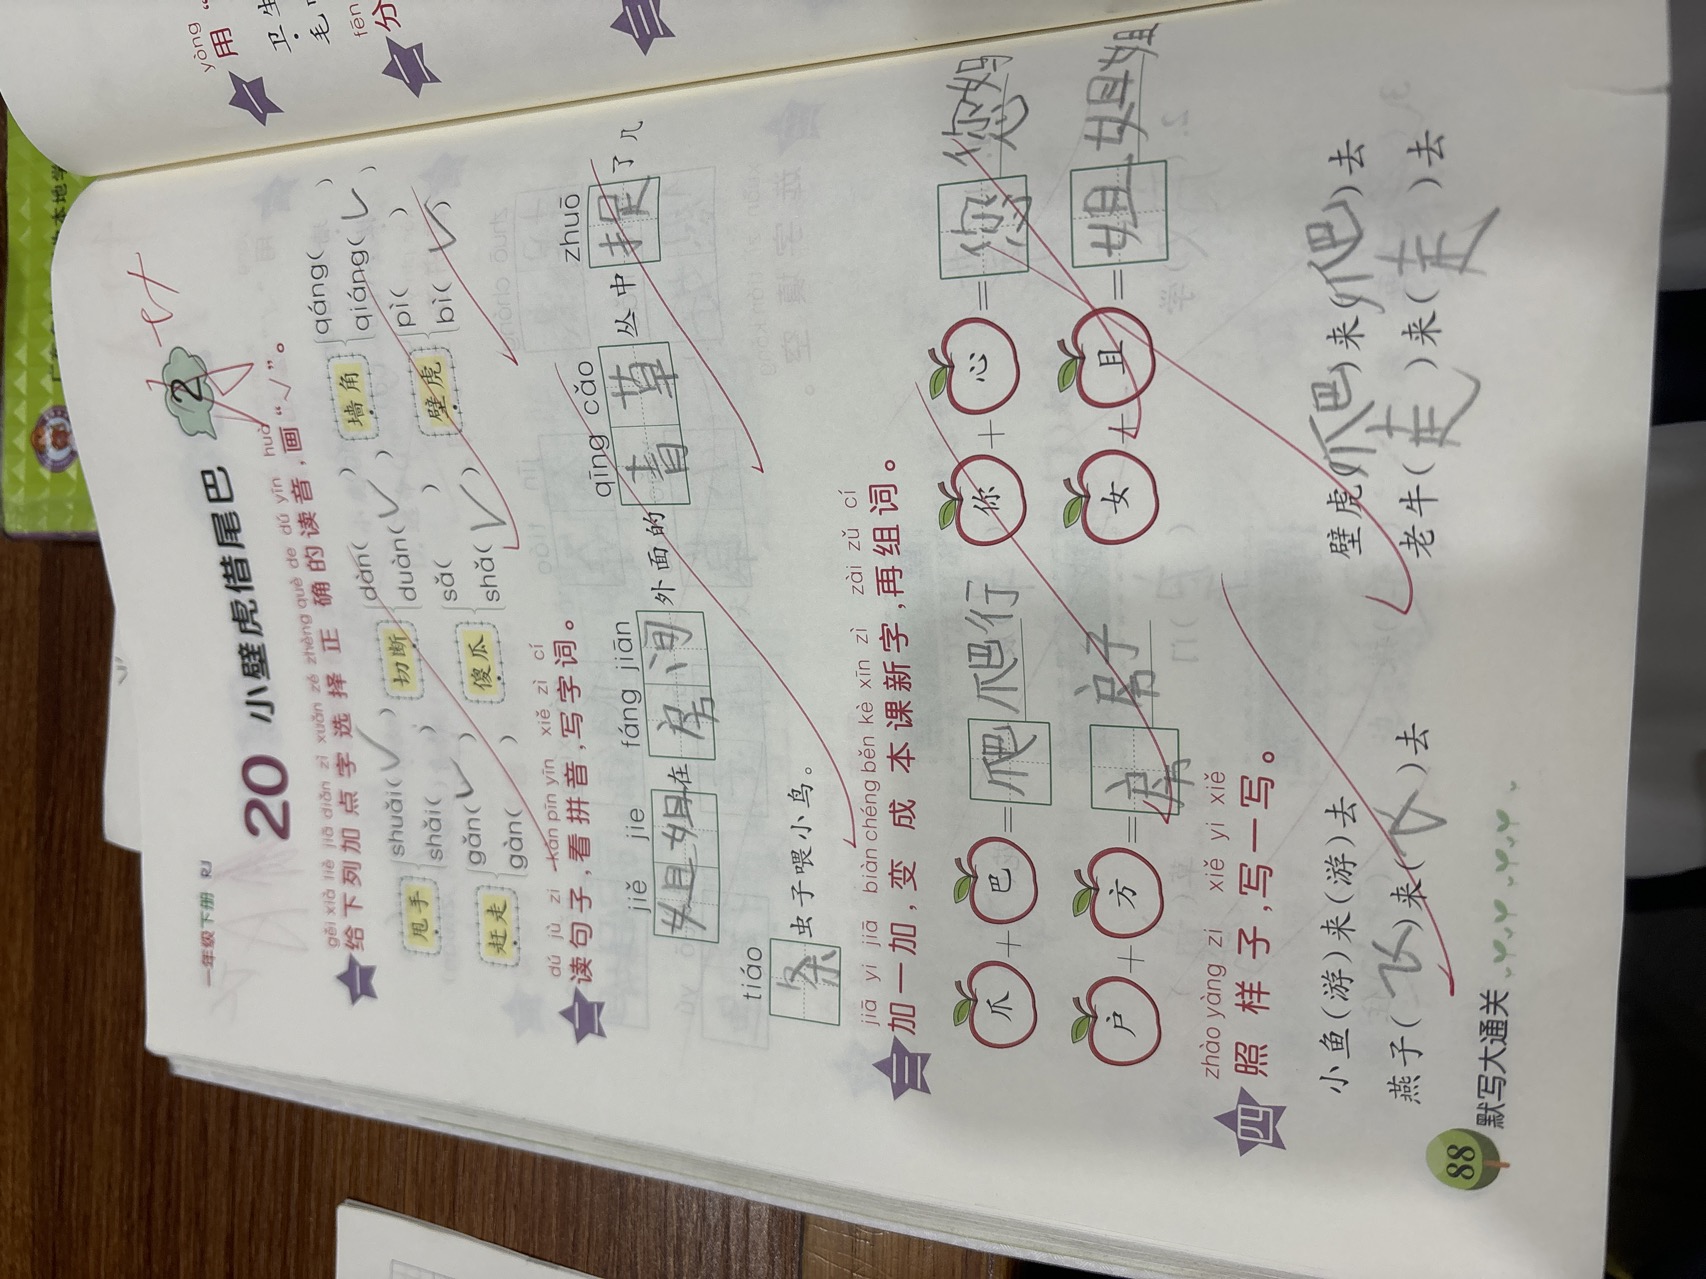 一年级下册 RJ
20 小壁虎借尾巴
2
gěi xià liè jiā diǎn zì xuǎn zé zhèng què de dú yīn huà
一 给下列加点字选择正确的读音,画“√”。
甩手 shuǎi(√) shǎi( )
切断 dàn( ) duàn(√)
墙角 qáng( ) qiáng(√)
赶走 gǎn(√) gàn( )
傻瓜 sǎ( ) shǎ(√)
壁虎 pì( ) bì(√)
dú jù zi kàn pīn yīn xiě zì cí
二 读句子,看拼音,写字词。
jiě jie fáng jiān qīng cǎo zhuō
姐姐在房间外面的青草丛中捉了几
tiáo
条虫子喂小鸟。
jiā yi jiā biàn chéng běn kè xīn zì zài zǔ cí
三 加一加,变成本课新字,再组词。
爪+巴=爬 爬行 你+心=您 您妈
户+方=房 房子 女+且=姐 姐姐
zhào yàng zi xiě yi xiě
四 照样子,写一写。
小鱼(游)来(游)去 壁虎(爬)来(爬)去
燕子(飞)来(飞)去 老牛(走)来(走)去
88 默写大通关
yòng
用“
卫生
毛
fēn
分